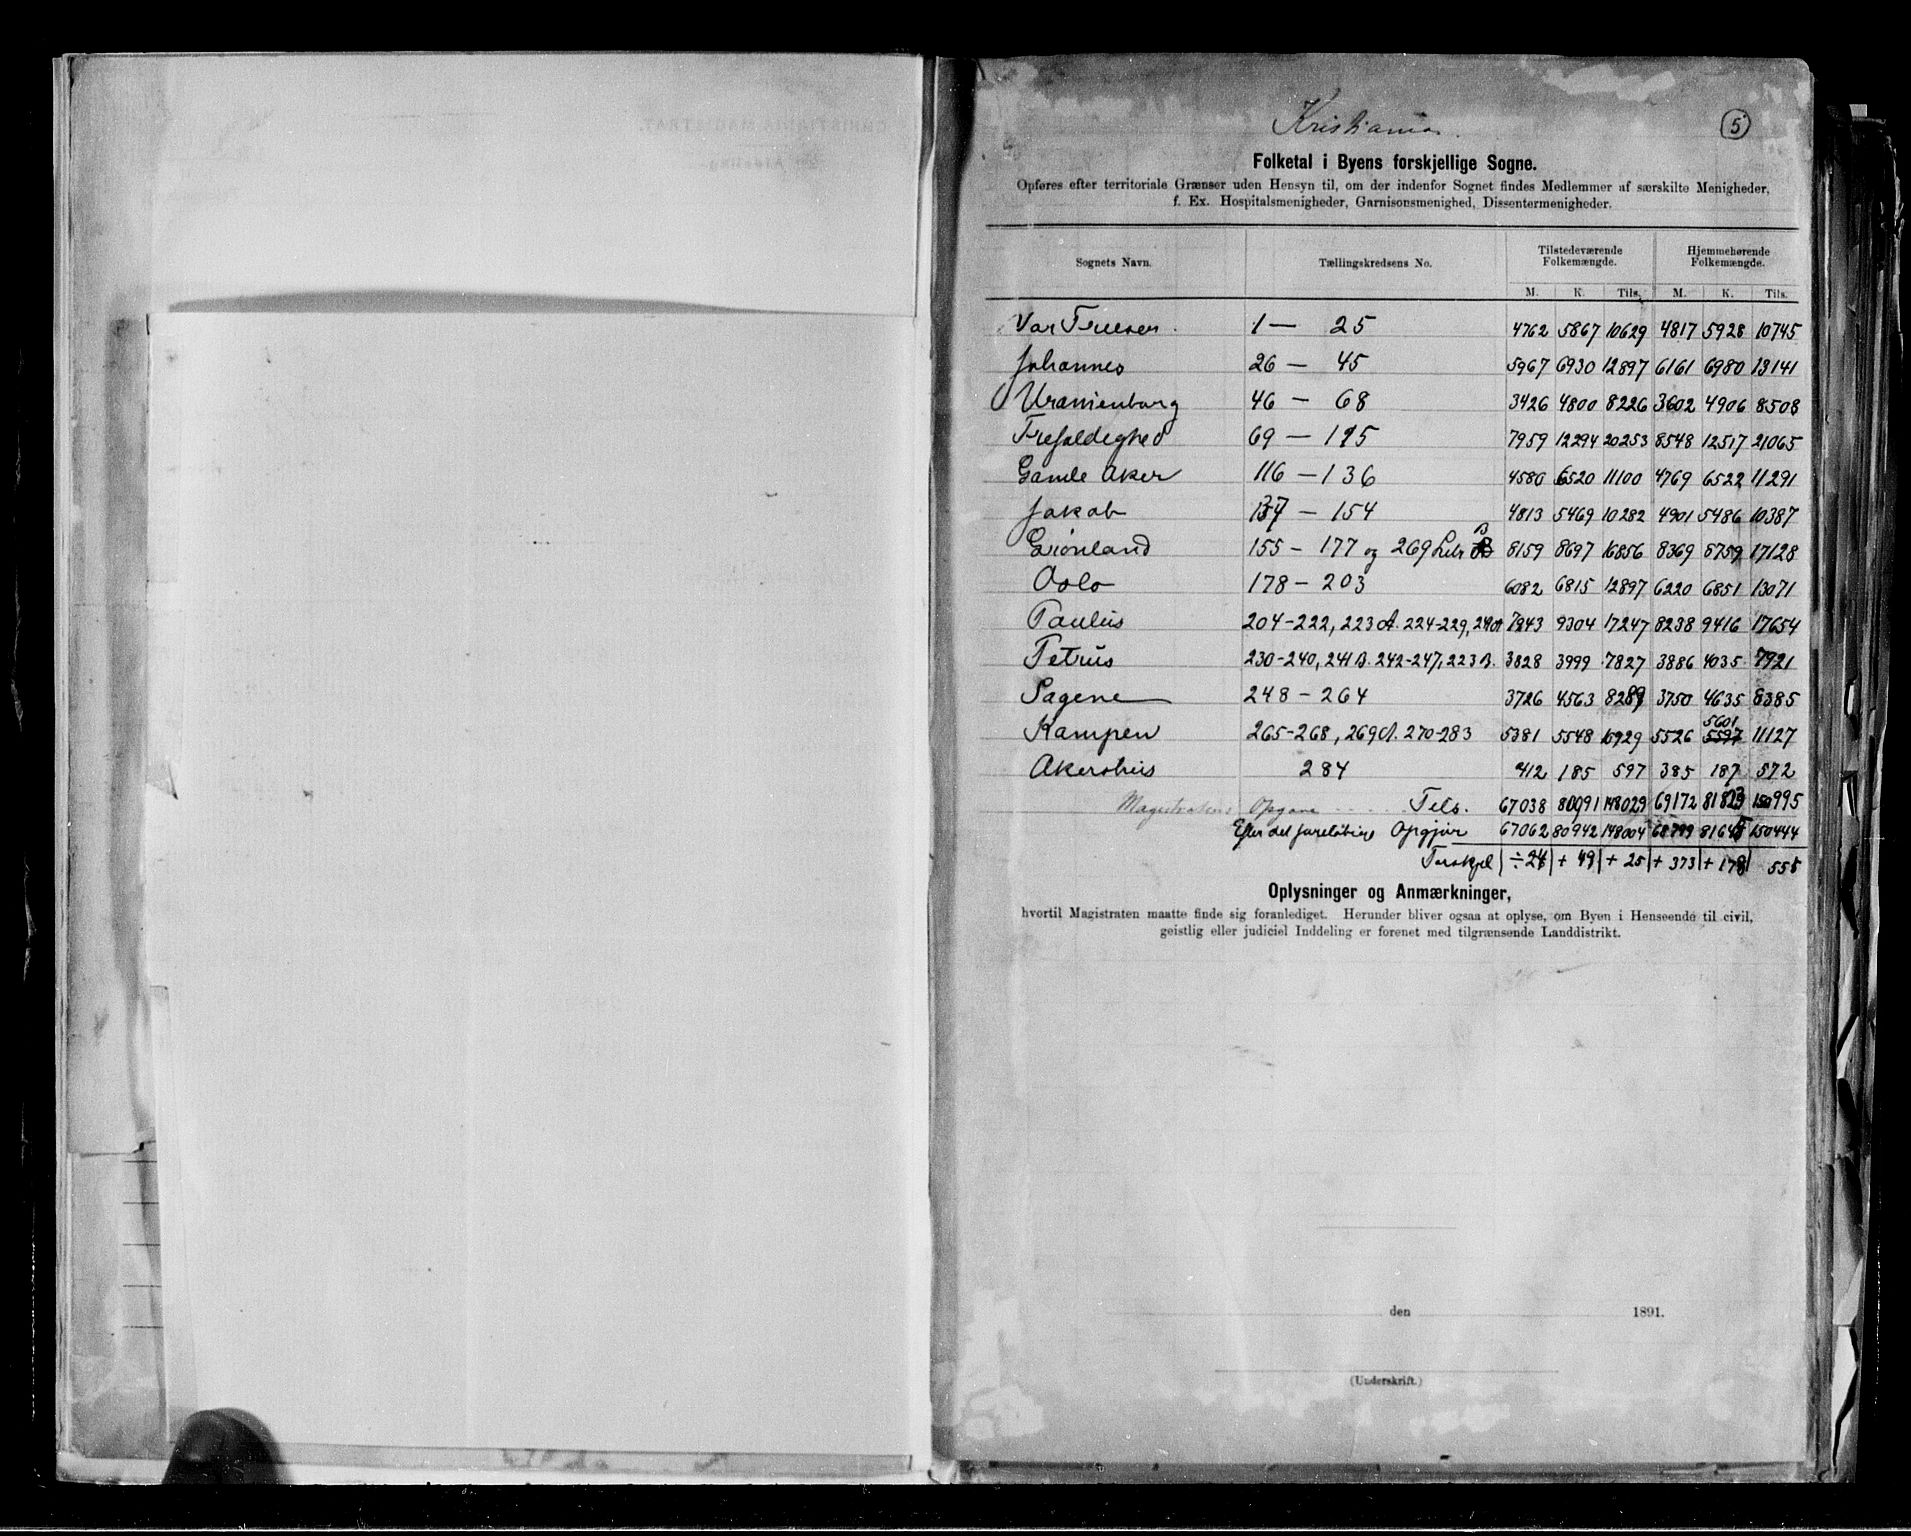 Kristiania.
5
Folketal i Byens forskjellige Sogne.
Opføres efter territoriale Grænser uden Hensyn til, om der indenfor Sognet findes Medlemmer af særskilte Menigheder,
f. Ex. Hospitalsmenigheder, Garnisonsmenighed, Dissentermenigheder.
Sognets Navn. Tællingskredsens No. Tilstedeværende Folkemængde. Hjemmehørende Folkemængde.
M. K. Tils. M. K. Tils.
Vor Frelser. 1 — 25 4762 5867 10629 4817 5928 10745
Johannes 26 — 45 5967 6930 12897 6161 6980 13141
Uranienborg 46 — 68 3426 4800 8226 3602 4906 8508
Trefoldighed 69 — 115 7959 12294 20253 8548 12517 21065
Gamle Aker 116 — 136 4580 6520 11100 4769 6522 11291
Jakob 137 — 154 4813 5469 10282 4901 5486 10387
Grønland 155 — 177 og 269 Litr B 8159 8697 16856 8369 8759 17128
Oslo 178 — 203 6082 6815 12897 6220 6851 13071
Paulus 204-222, 223 A. 224-229, 241 A 7943 9304 17247 8238 9416 17654
Petrus 230-240, 241 B. 242-247, 223 B. 3828 3999 7827 3886 4035 7921
Sagene 248 — 264 3726 4563 8289 3750 4635 8385
Kampen 265-268, 269 A. 270-283 5381 5548 10929 5526 5601 5597 11127
Akershus 284 412 185 597 385 187 572
Magistratens Opgave Tils. 67038 80991 148029 69172 81823 150995
Efter det foreløbige Opgjør 67062 80942 148004 68799 81645 150444
Forskjel ÷ 24 + 49 + 25 + 373 + 178 558
Oplysninger og Anmærkninger,
hvortil Magistraten maatte finde sig foranlediget. Herunder bliver ogsaa at oplyse, om Byen i Henseende til civil,
geistlig eller judiciel Inddeling er forenet med tilgrænsende Landdistrikt.
den 1891.
(Underskrift.)